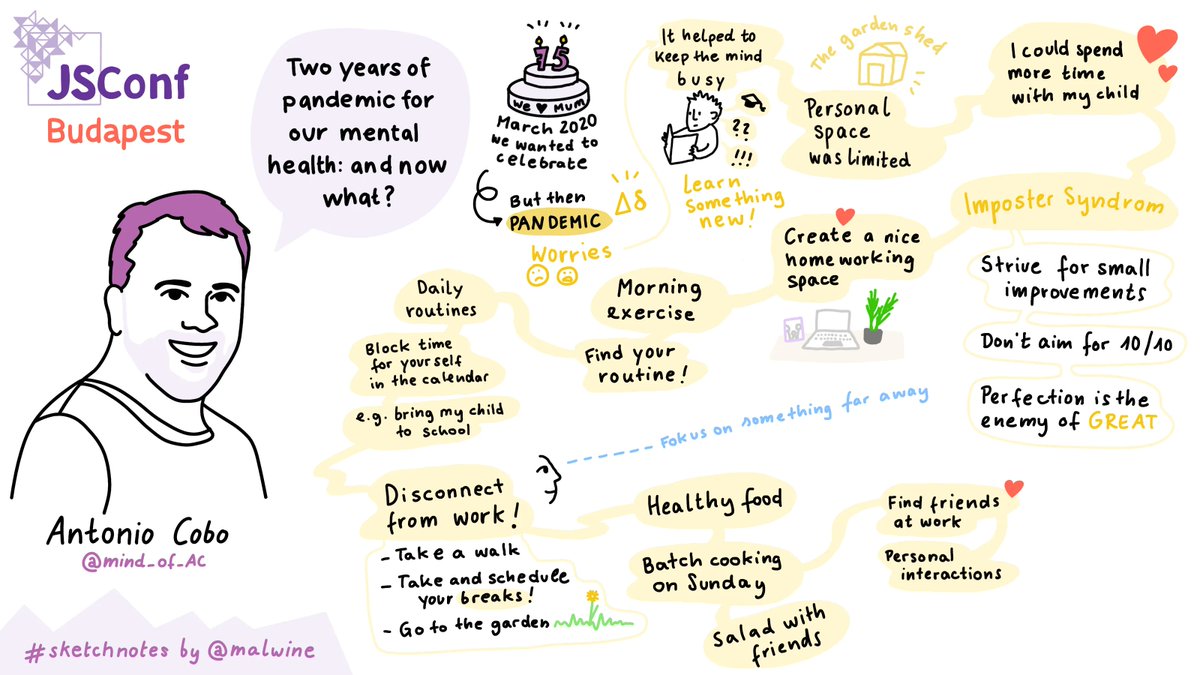 JSConf
Budapest
Two years of
pandemic for
our mental
health: and now
what?
75
We ♥ Mum
March 2020
we wanted to
celebrate
But then
PANDEMIC
Δδ
Worries
It helped to
keep the mind
busy
??
!!!
Learn
something
new!
The garden shed
Personal
Space
was limited
I could spend
more time
with my child
Imposter Syndrom
Strive for small
improvements
Don't aim for 10/10
Perfection is the
enemy of GREAT
Create a nice
home working
space
Morning
exercise
Find your
routine!
Daily
routines
Block time
for your self
in the calendar
e.g. bring my child
to school
Disconnect
from work!
- Take a walk
- Take and schedule
your breaks!
- Go to the garden
Fokus on something far away
Healthy food
Batch cooking
on Sunday
Salad with
friends
Find friends
at work
Personal
interactions
Antonio Cobo
@mind_of_AC
#sketchnotes by @malwine